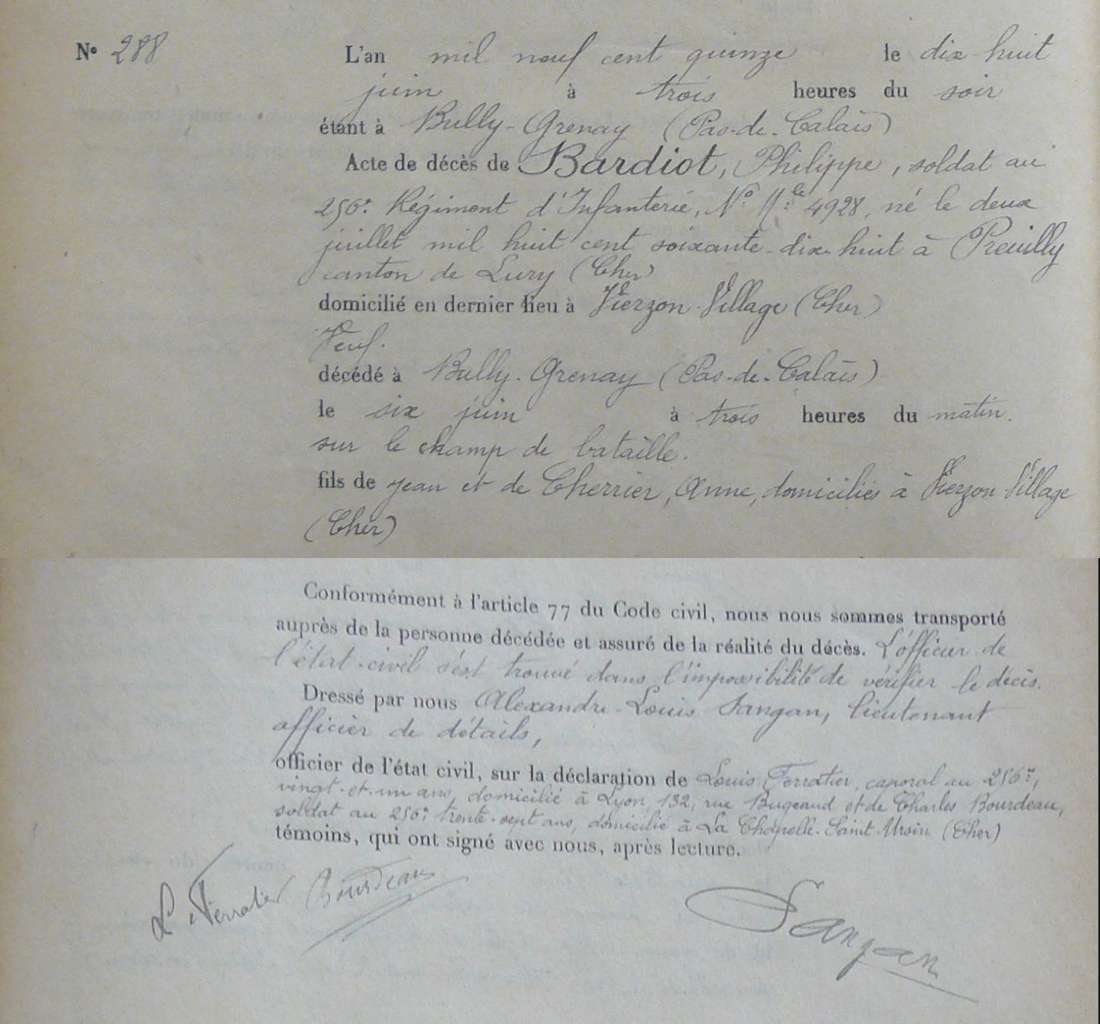 N° 288 L'an mil neuf cent quinze le dix huit
juin à trois heures du soir
étant à Bully-Grenay (Pas-de-Calais)
Acte de décès de Bardiot, Philippe, soldat au
256e Régiment d'Infanterie, N° Mle 4928, né le deux
juillet mil huit cent soixante-dix huit à Preuilly
canton de Lury (Cher)
domicilié en dernier lieu à Vierzon-Village (Cher)
Veuf.
décédé à Bully-Grenay (Pas-de-Calais)
le six juin à trois heures du matin.
sur le champ de bataille.
fils de Jean et de Cherrier, Anne, domiciliés à Vierzon Village
(Cher)
Conformément à l'article 77 du Code civil, nous nous sommes transporté
auprès de la personne décédée et assuré de la réalité du décès. L'officier de
l'état-civil s'est trouvé dans l'impossibilité de vérifier le décès.
Dressé par nous Alexandre-Louis Sangan, lieutenant
officier de détails,
officier de l'état civil, sur la déclaration de Louis Ferratier, caporal au 256e,
vingt-et-un ans, domicilié à Lyon, 132, rue Bugeaud et de Charles Bourdeau,
soldat au 256e trente-sept ans, domicilié à La Chapelle-Saint-Ursin (Cher)
témoins, qui ont signé avec nous, après lecture.
L Ferratier Bourdeau Sangan